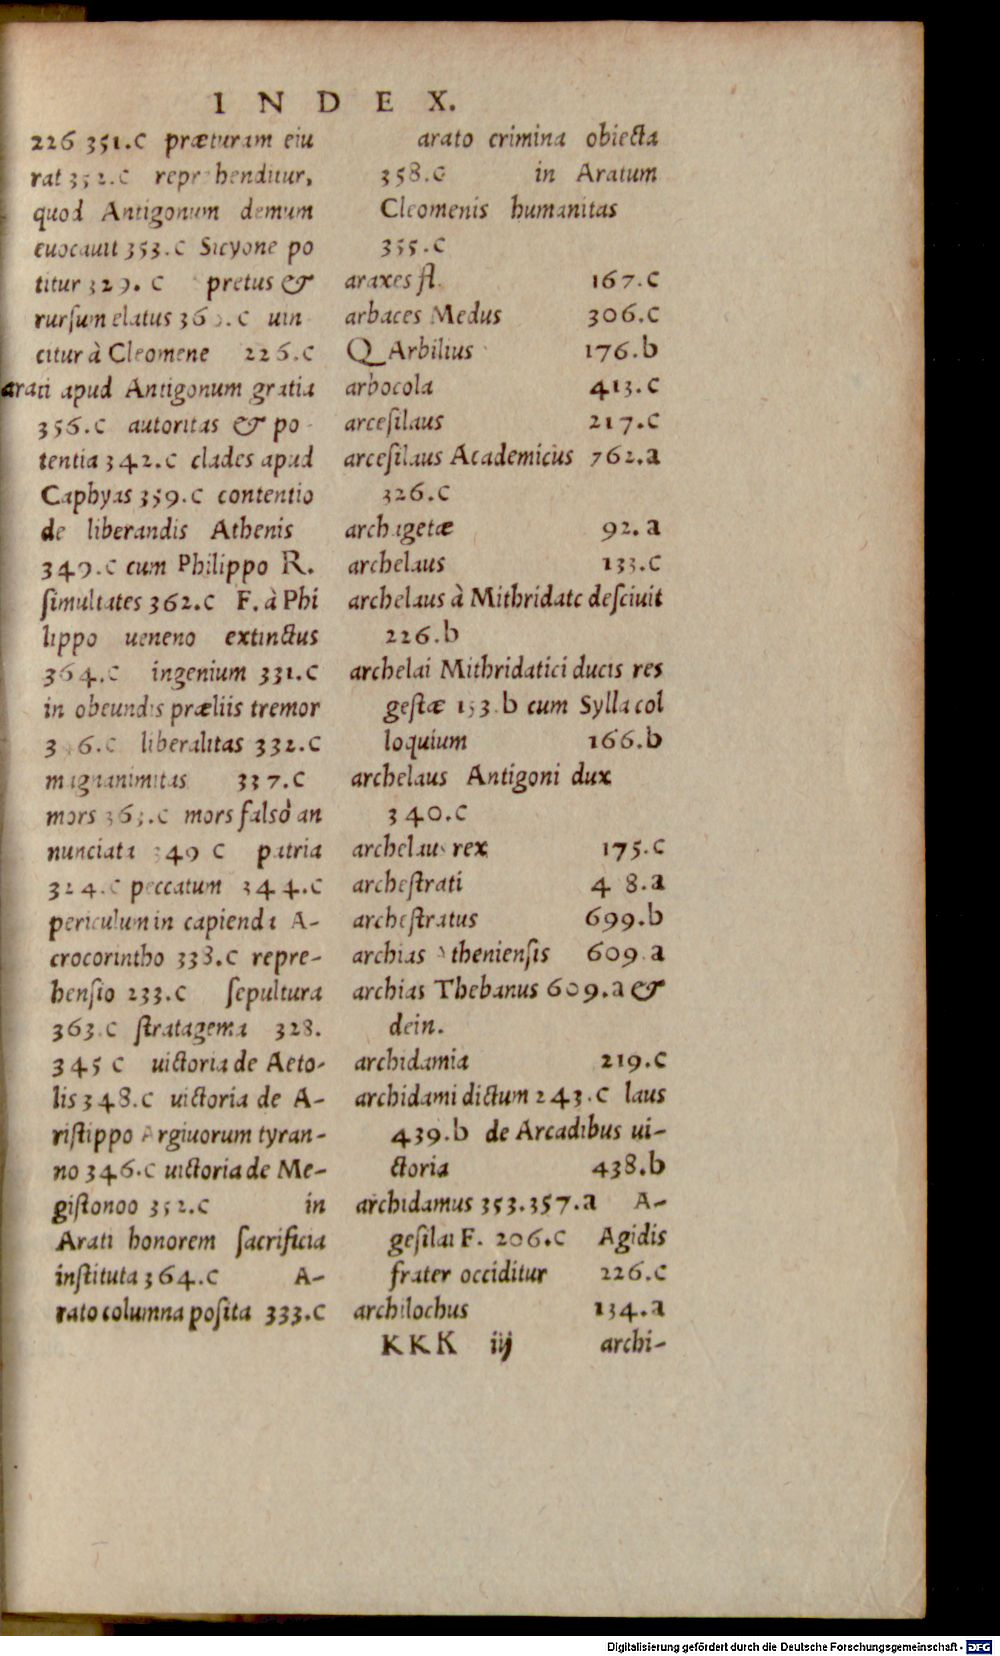 INDEX.
226 351.c præturam eiu
rat 352.c reprehenditur,
quod Antigonum demum
euocauit 353.c Sicyone po
titur 329. c pretus &
rursum elatus 360.c uin
citur à Cleomene 226.c
arati apud Antigonum gratia
356.c autoritas & po-
tentia 342.c clades apud
Caphyas 359.c contentio
de liberandis Athenis
349.c cum Philippo R.
simultates 362.c F. à Phi
lippo ueneno extinctus
364.c ingenium 331.c
in obeundis præliis tremor
liberalitas 332.c
magnanimitas 337.c
mors 363.c mors falsò an
nunciata 349 c patria
324.c peccatum 344.c
periculum in capienda A-
crocorintho 338.c repre-
hensio 233.c sepultura
363.c stratagema 328.
345 c uictoria de Aeto-
lis 348.c uictoria de A-
ristippo Argiuorum tyran-
no 346.c uictoria de Me-
gistonoo 352.c in
Arati honorem sacrificia
instituta 364.c A-
rato columna posita 333.c
arato crimina obiecta
358.c in Aratum
Cleomenis humanitas
355.c
araxes fl. 167.c
arbaces Medus 306.c
Q Arbilius 176.b
arbocola 413.c
arcesilaus 217.c
arcesilaus Academicus 762.a
326.c
archigetæ 92.a
archelaus 133.c
archelaus à Mithridate desciuit
226.b
archelai Mithridatici ducis res
gestæ 153.b cum Sylla col
loquium 166.b
archelaus Antigoni dux
340.c
archelaus rex 175.c
archestrati 4 8.a
archestratus 699.b
archias Atheniensis 609.a
archias Thebanus 609.a &
dein.
archidamia 219.c
archidami dictum 243.c laus
439.b de Arcadibus ui-
ctoria 438.b
archidamus 353.357.a A-
gesilai F. 206.c Agidis
frater occiditur 226.c
archilochus 134.a
KKK iij archi-
Digitalisierung gefördert durch die Deutsche Forschungsgemeinschaft - DFG